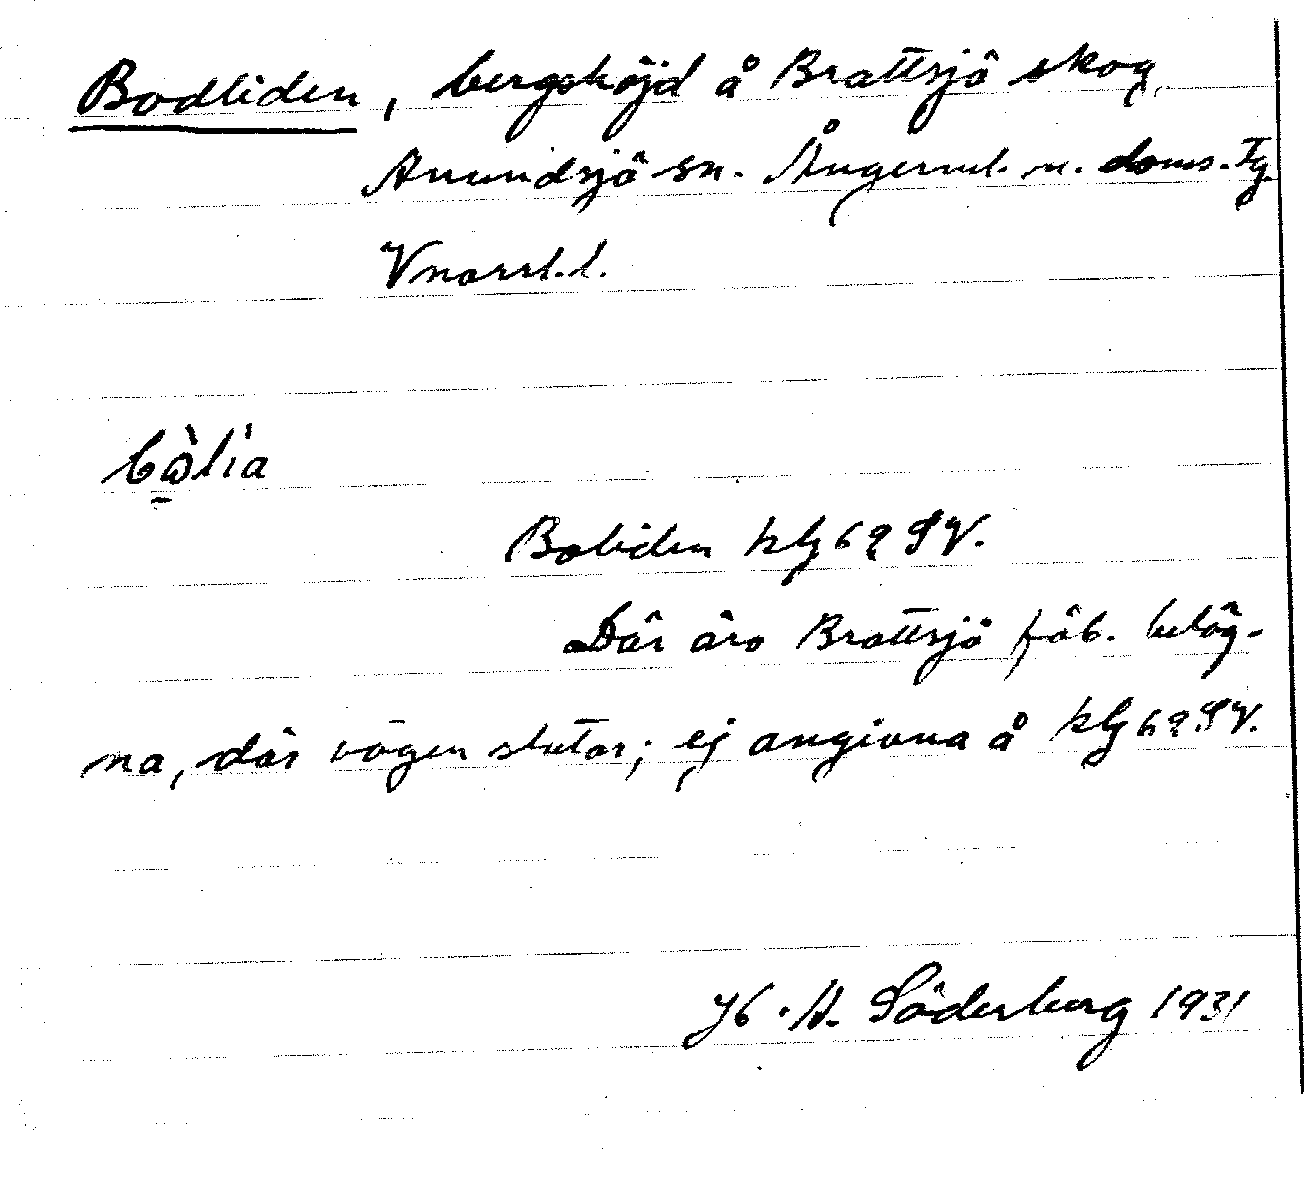 Bodliden, bergshöjd å Brattsjö skog,
Anundsjö sn. Ångerml. n. doms. Tg.
Vnorrl. l.
bὼ̲lìa
Boliden kbl 62 SV.
Där äro Brattsjö fäb. beläg-
na, där vägen slutar; ej angivna å kbl 62 SV.
H. A. Söderberg 1931